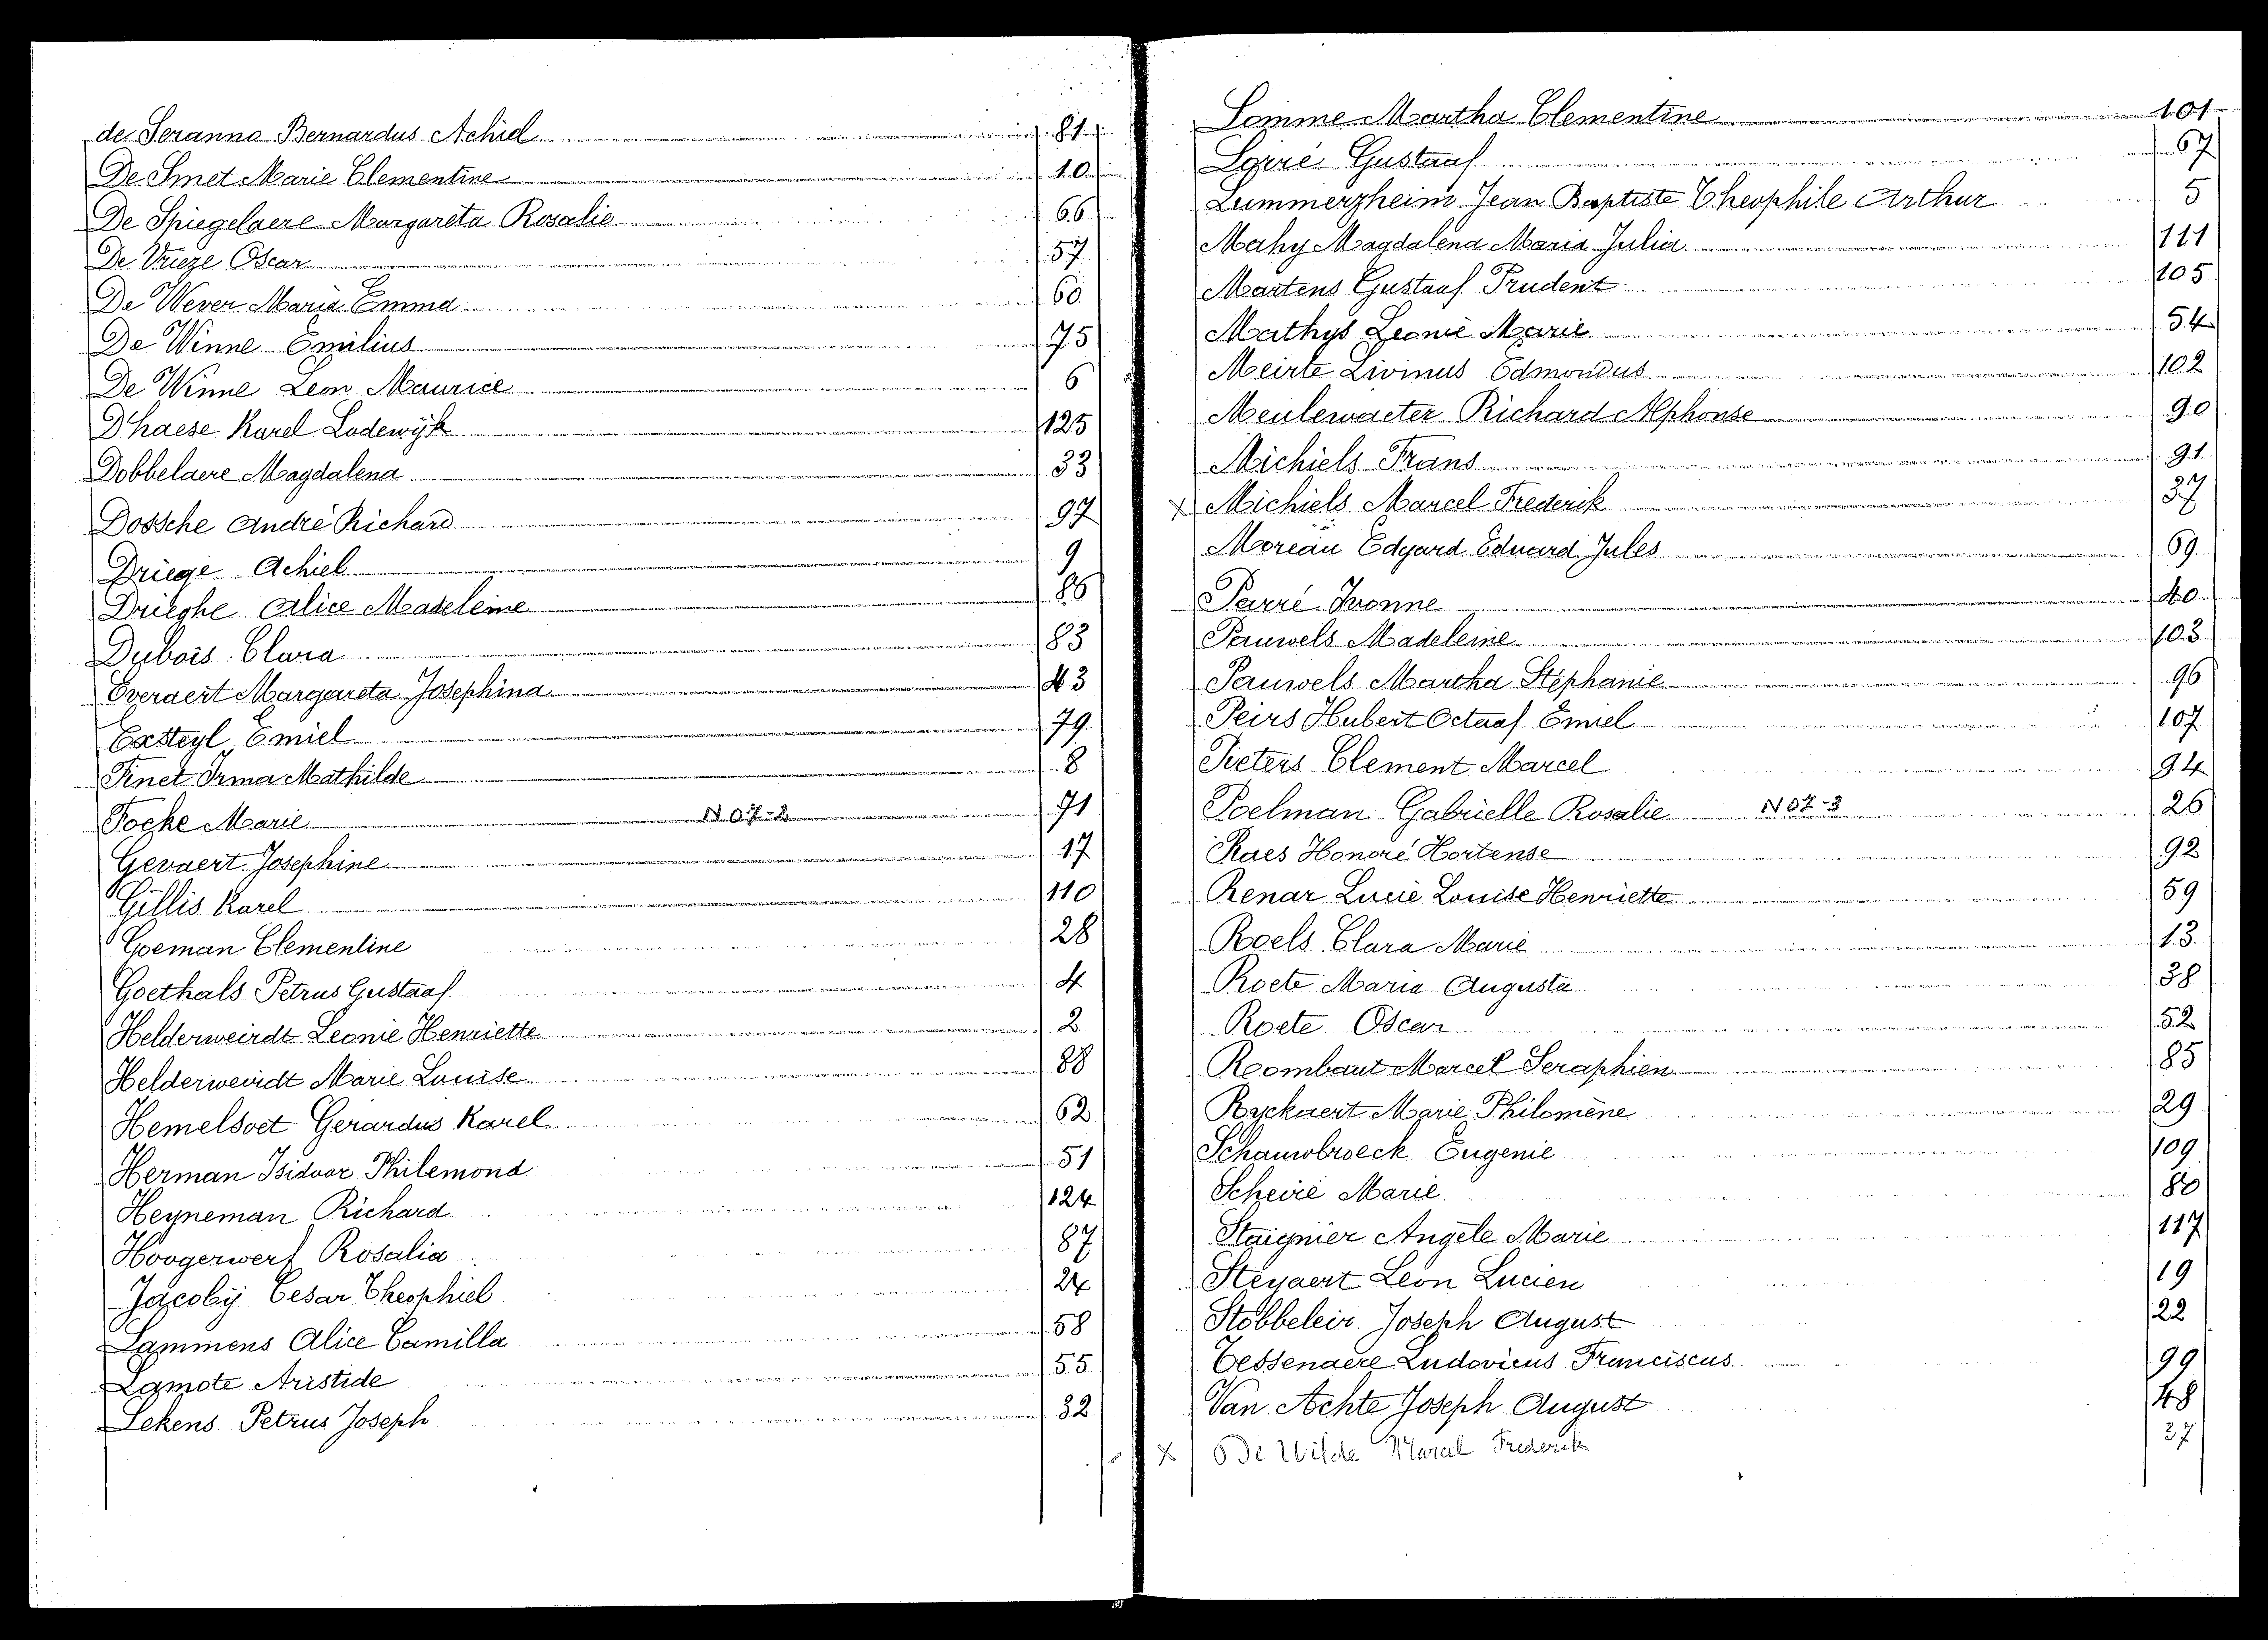 de Seranno Bernardus Achiel 81
De Smet Marie Clementine 10
De Spiegelaere Margareta Rosalie 66
De Vrieze Oscar 57
De Wever Maria Emma 60
De Winne Emilius 75
De Winne Leon Maurice 6
D'haese Karel Lodewijk 125
Dobbelaere Magdalena 33
Dossche André Richard 97
Driege Achiel 9
Drieghe Alice Madeleine 86
Dubois Clara 83
Everaert Margareta Josephina 43
Exsteyl Emiel 79
Finet Irma Mathilde 8
Focke Marie N07-2 71
Gevaert Josephine 17
Gillis Karel 110
Goeman Clementine 28
Goethals Petrus Gustaaf 4
Helderweirdt Leonie Henriette 2
Helderweirdt Marie Louise 88
Hemelsoet Gerardus Karel 62
Herman Isidoor Philemond 51
Heyneman Richard 124
Hoogerwerf Rosalia 87
Jacobij Cesar Theophiel 24
Lammens Alice Camilla 58
Lamote Aristide 55
Lekens Petrus Joseph 32
Lomme Martha Clementine 101
Lorré Gustaaf 67
Lummerzheim Jean Baptiste Theophile Arthur 5
Mahy Magdalena Maria Julia 111
Martens Gustaaf Prudent 105
Mathys Leonie Marie 54
Meirte Livinus Edmondus 102
Meulewaeter Richard Alphonse 90
Michiels Frans 91
x Michiels Marcel Frederik 37
Moreau Edgard Eduard Jules 69
Parré Ivonne 40
Pauwels Madeleine 103
Pauwels Martha Stephanie 96
Peirs Hubert Octaaf Emiel 107
Pieters Clement Marcel 94
Poelman Gabrielle Rosalie N07-3 26
Raes Honoré Hortense 92
Renar Lucie Louise Henriette 59
Roels Clara Marie 13
Roete Maria Augusta 38
Roete Oscar 52
Roombaut Marcel Seraphien 85
Ryckaert Marie Philomène 29
Schauwbroeck Eugenie 109
Scheire Marie 80
Staignier Angèle Marie 117
Steyaert Leon Lucien 19
Stobbeleir Joseph August 22
Tessenaere Ludovicus Franciscus 99
Van Achte Joseph August 48
x De Wilde Marcel Frederik 37